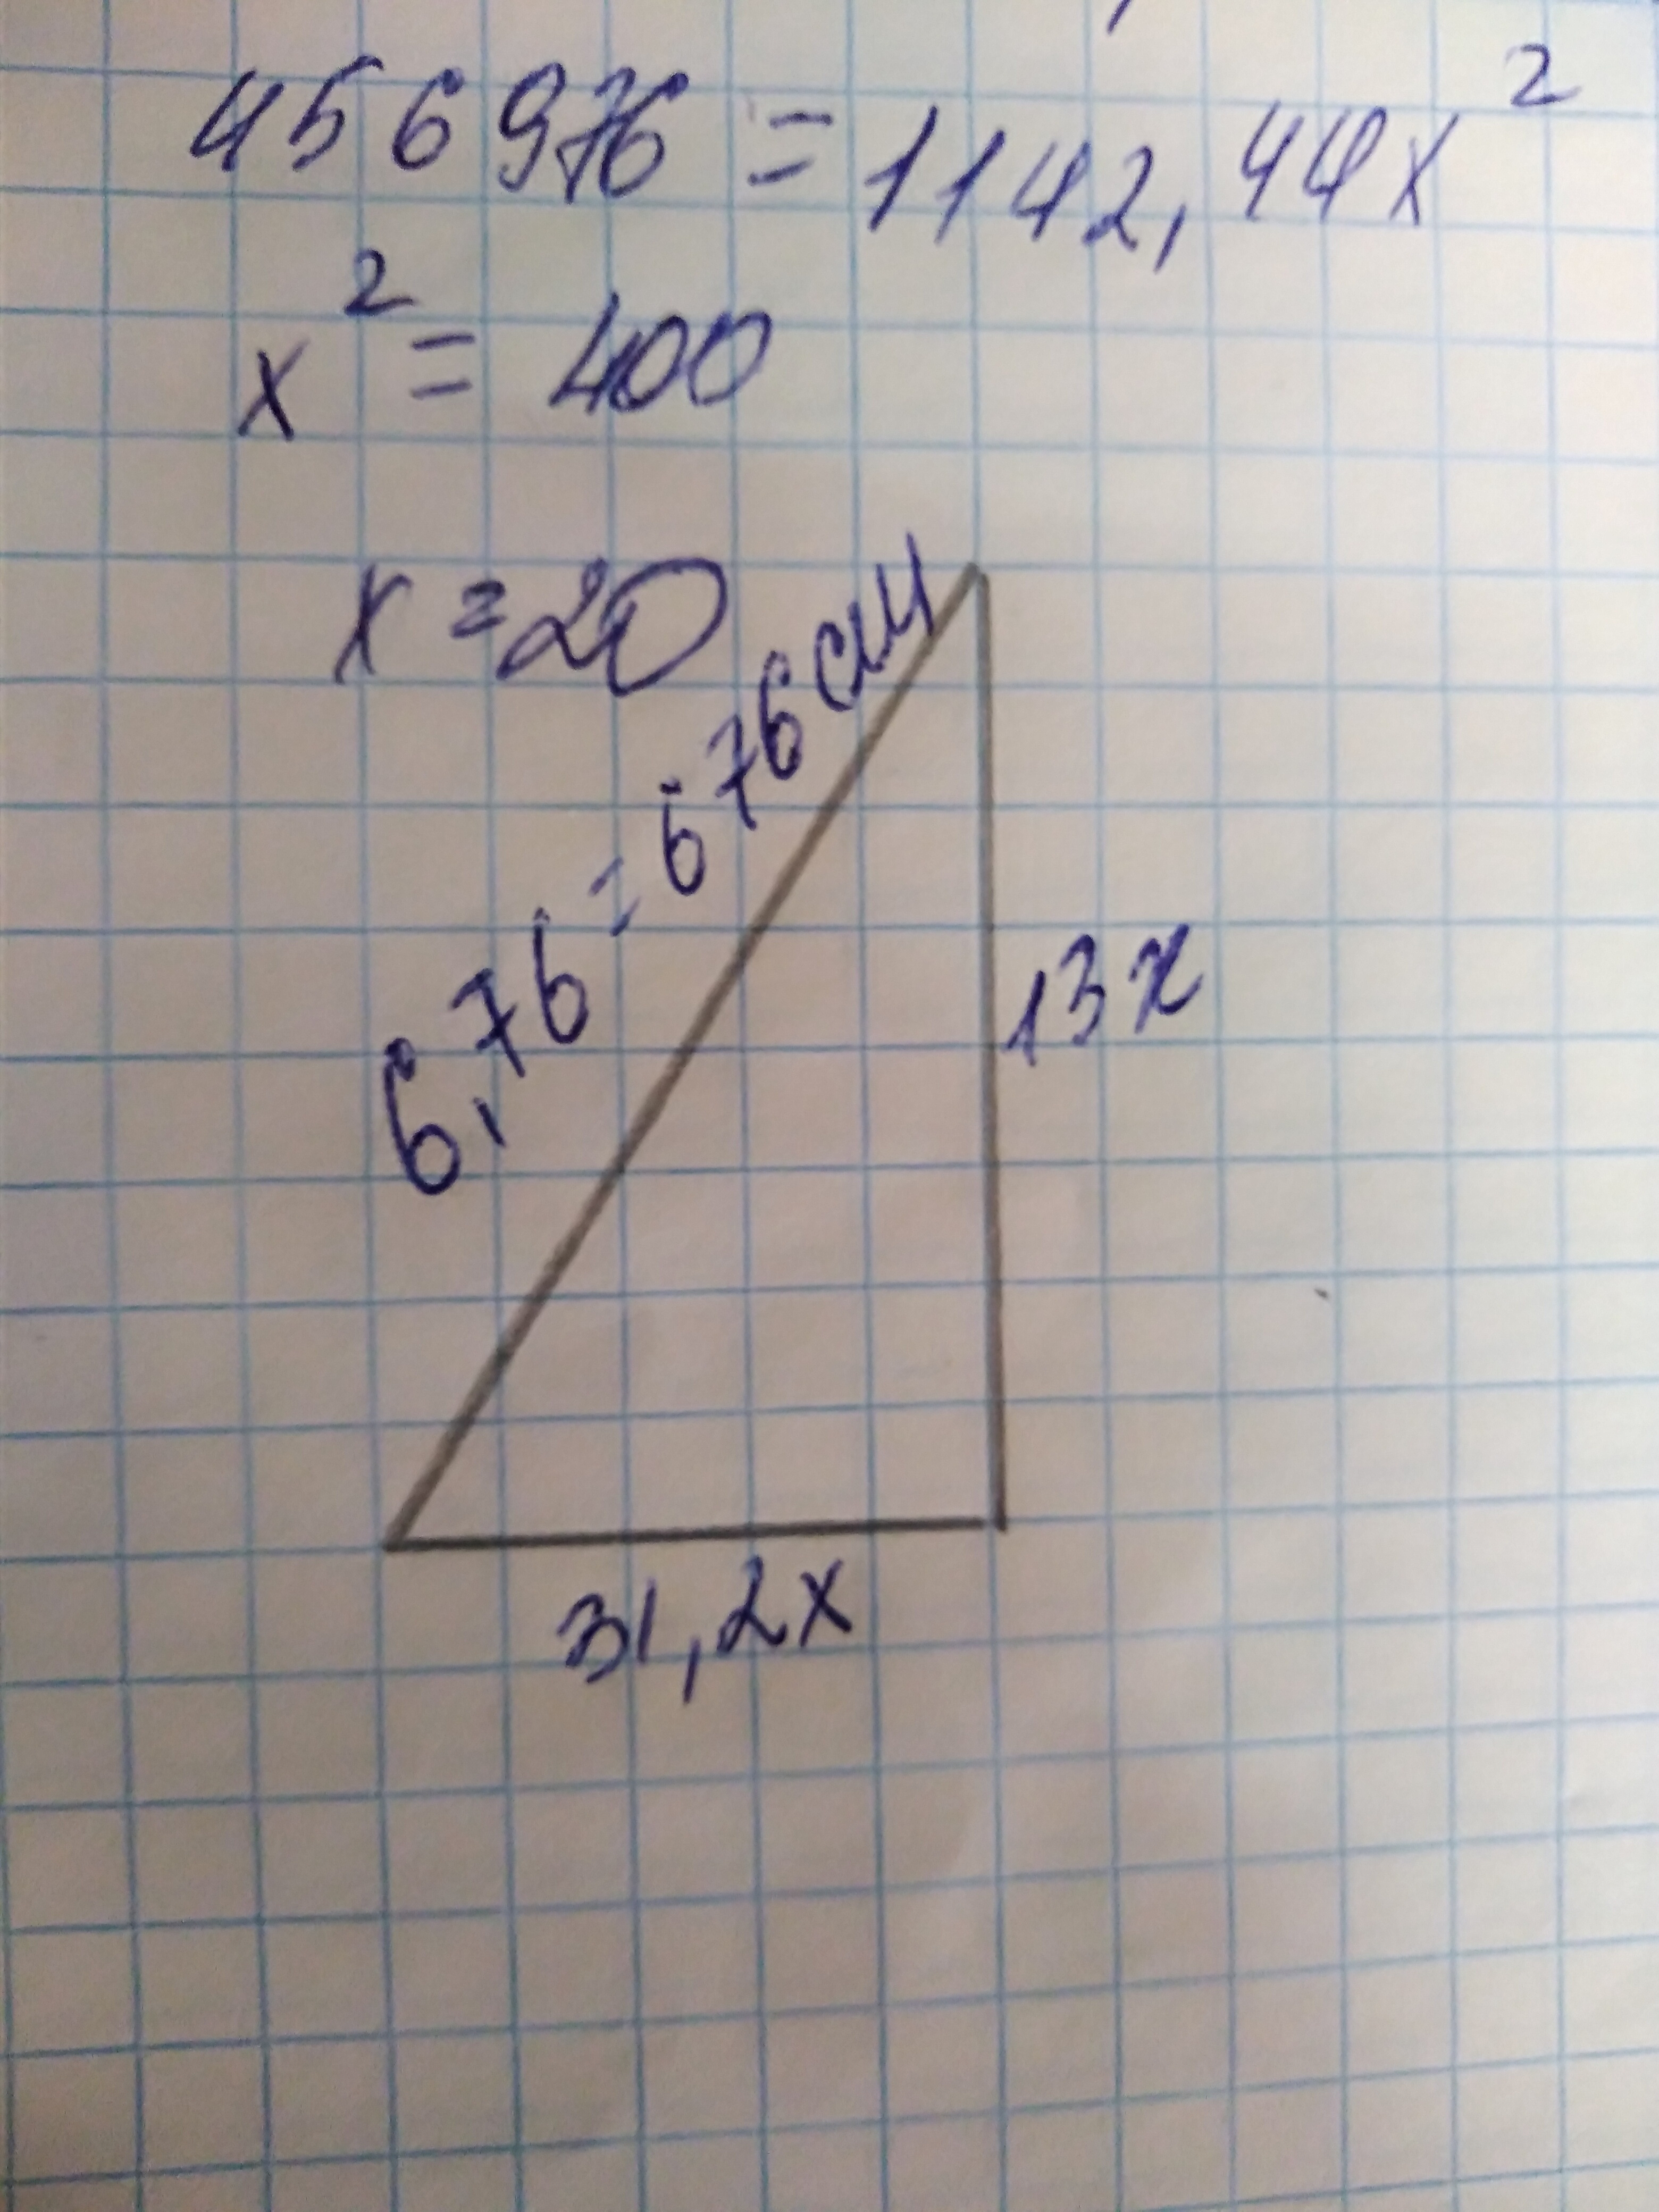 456976 = 1142,44x²
x² = 400
x = 20
6,76 = 676см
13x
31,2x